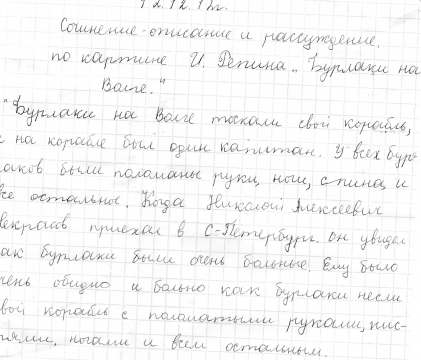 12.12.12г.
Сочинение-описание и рассуждение.
по картине И. Репина „Бурлаки на
Волге."
"Бурлаки на Волге таскали свой корабль,
на корабле был один капитан. У всех бур-
лаков были поламаны руки, ноги, спина и
все остальное. Когда Николой Алексеевич
Некрасов приехал в С-Петербург. он увидел
как бурлаки были очень больные. Ему было
очень обидно и больно как бурлаки несли
свой корабль с поламатыми руками, кис-
тями, ногами и всем остальным.